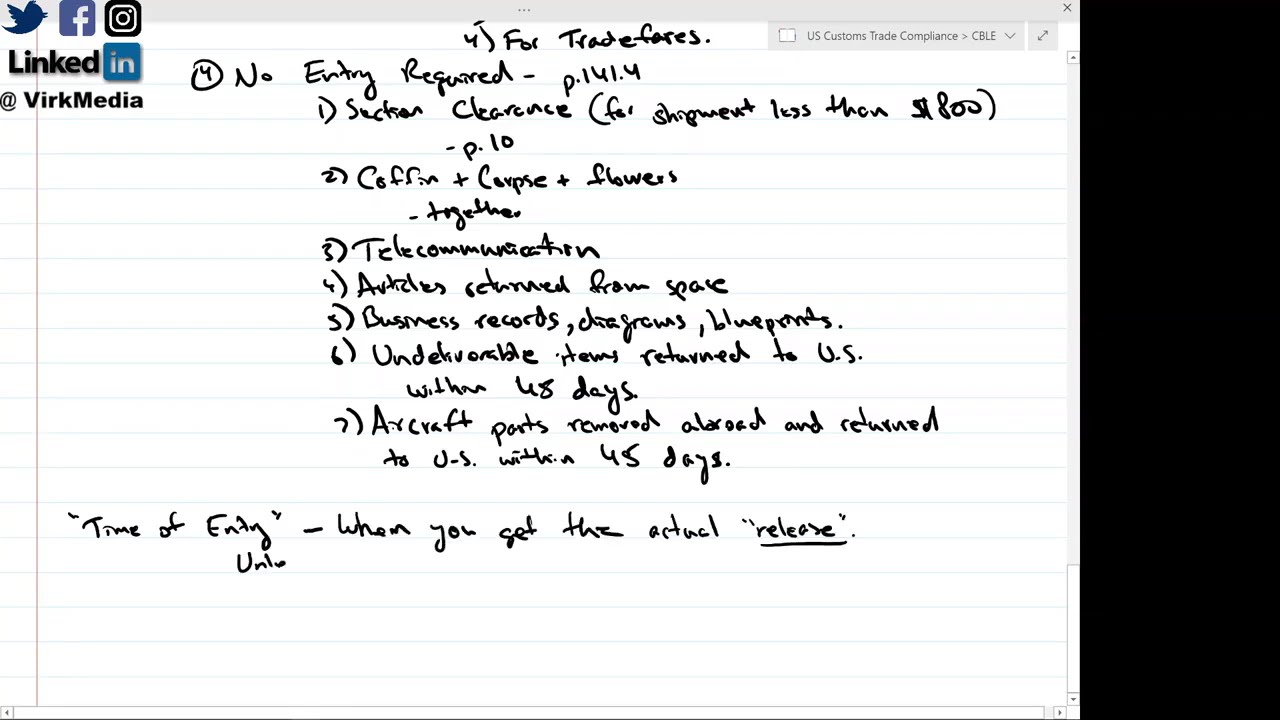 4) For Tradefares.
US Customs Trade Compliance > CBLE
Linked in
@ VirkMedia
(4) No Entry Required - p.141.4
1) Section Clearance (for shipment less than $800)
- p.10
2) Coffin + Corpse + flowers
- together
3) Telecommunication
4) Articles returned from space
5) Business records, diagrams, blueprints.
6) Undeliverable items returned to U.S.
within 45 days.
7) Aircraft parts removed abroad and returned
to U.S. within 45 days.
"Time of Entry" - When you get the actual "release".
Unle